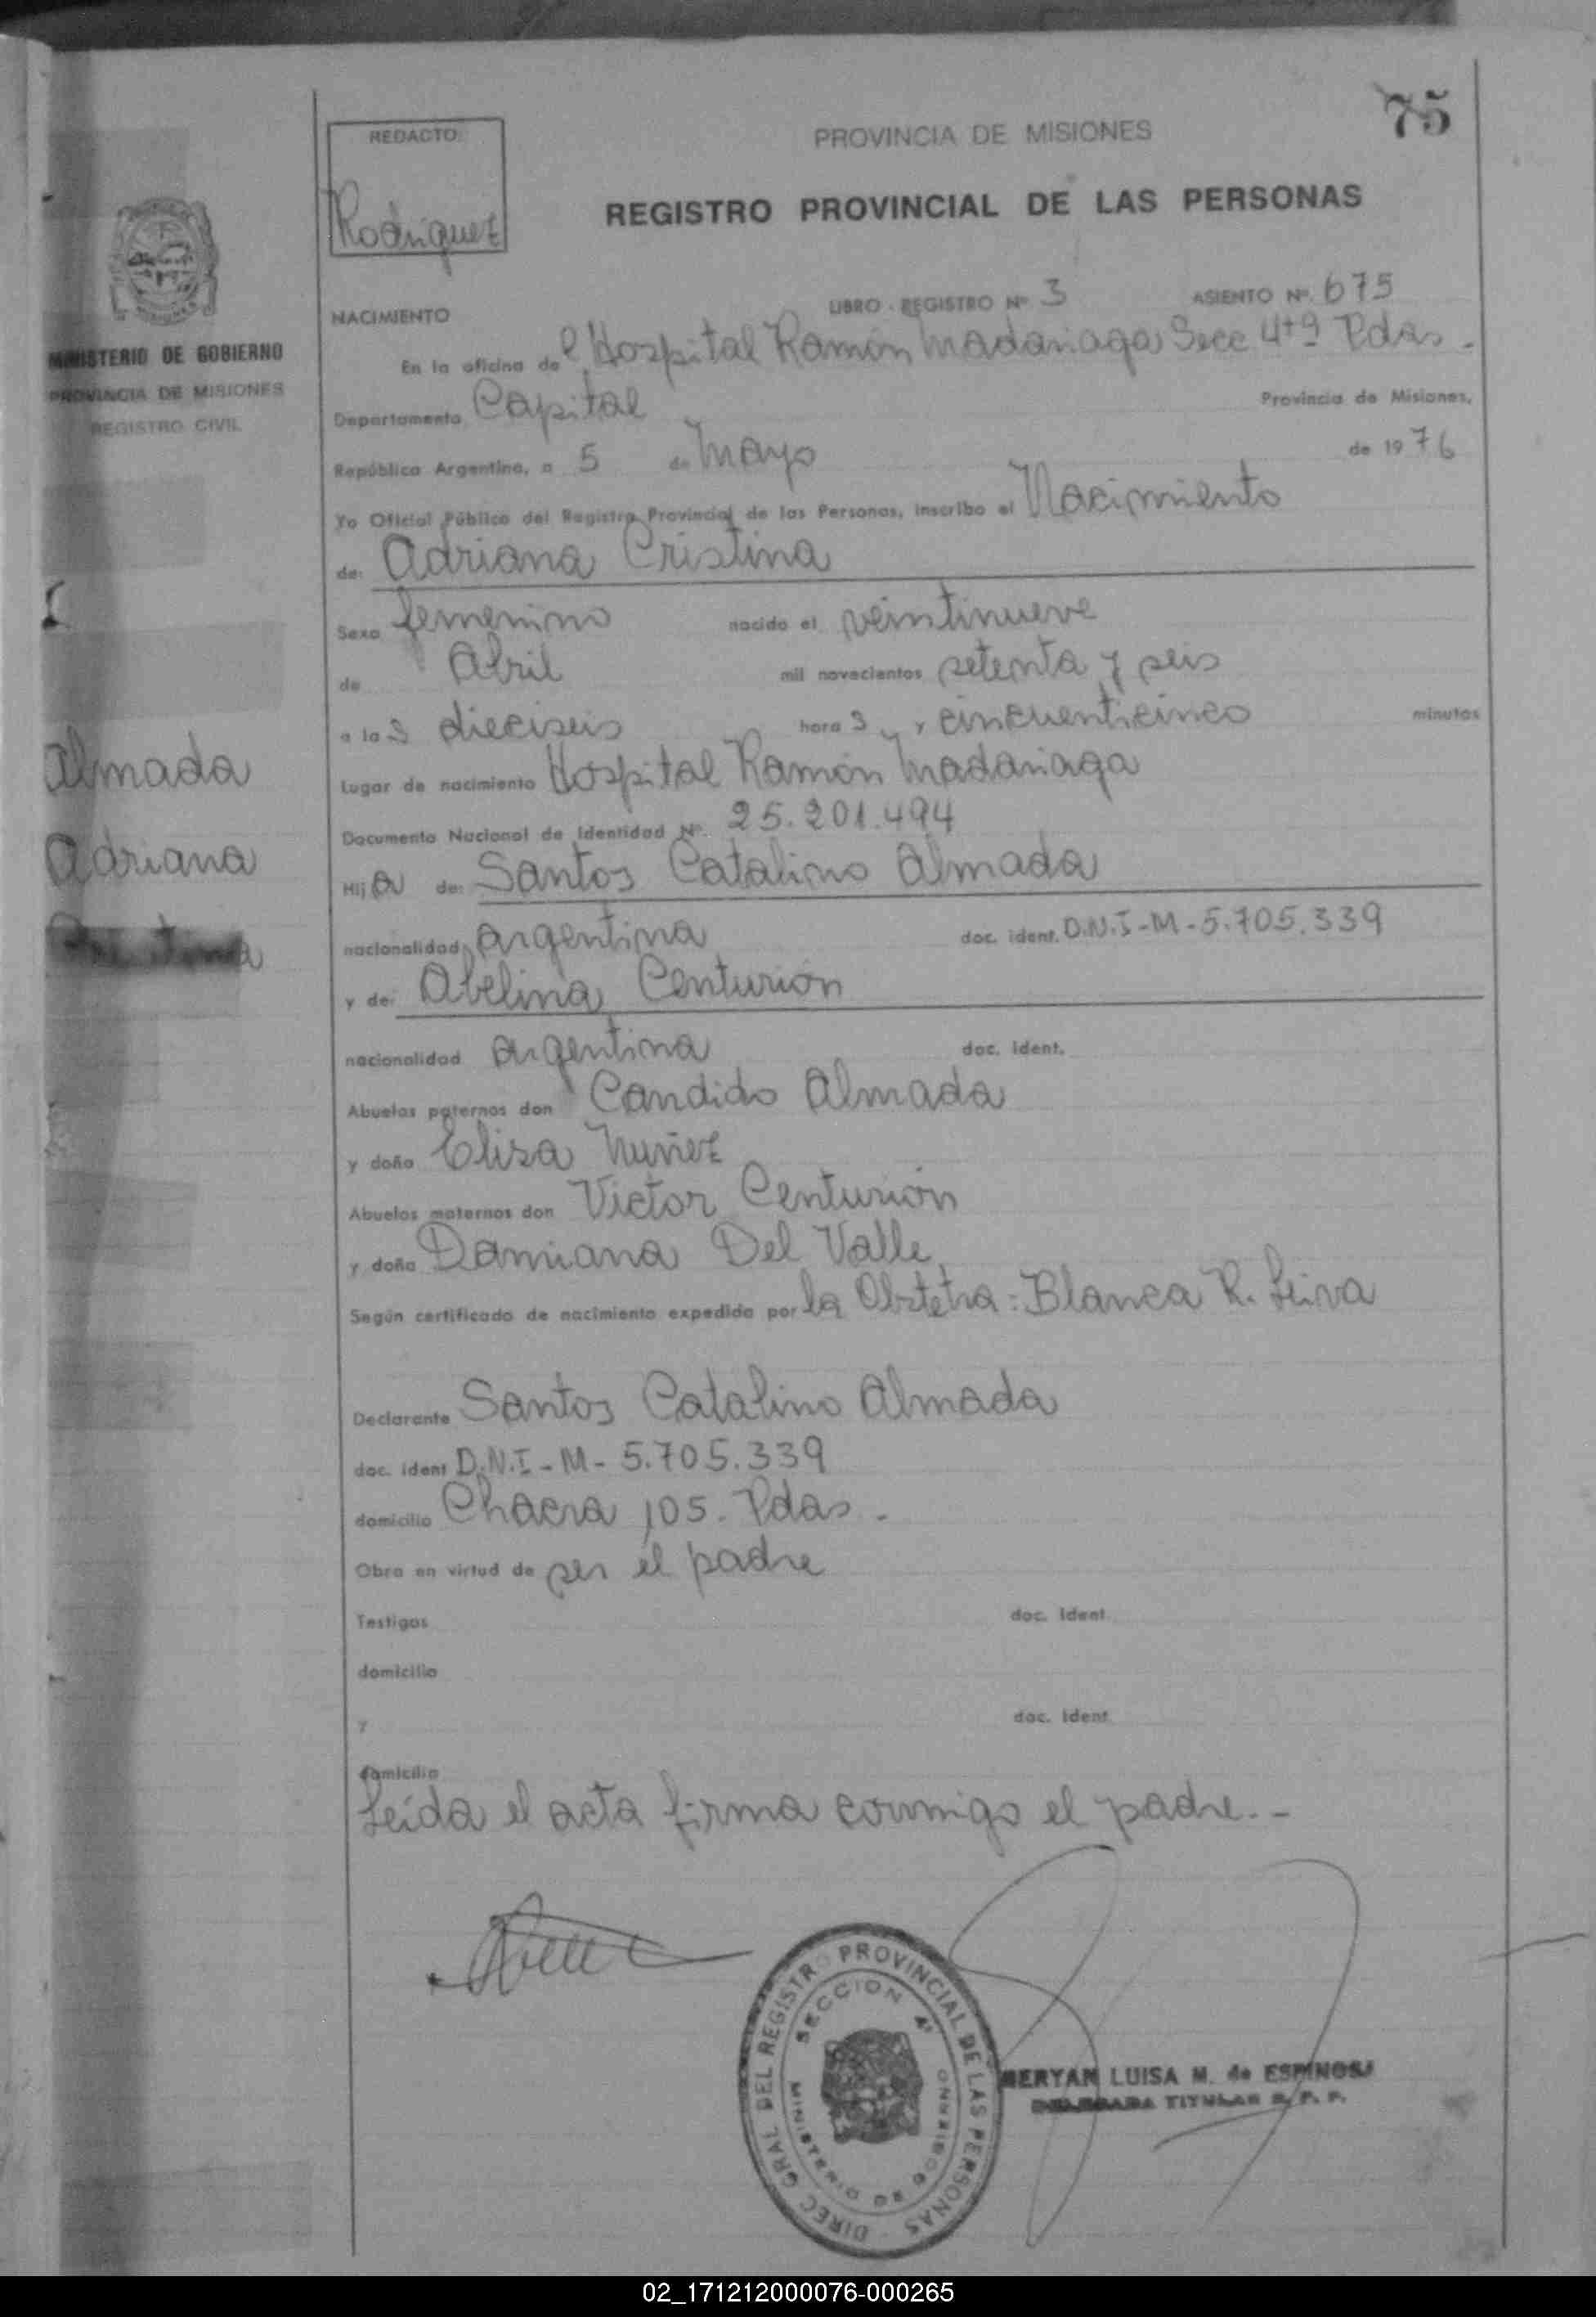 75
REDACTO:
Rodriguez
PROVINCIA DE MISIONES
REGISTRO PROVINCIAL DE LAS PERSONAS
MINISTERIO DE GOBIERNO
PROVINCIA DE MISIONES
REGISTRO CIVIL
NACIMIENTO LIBRO - REGISTRO Nº 3 ASIENTO Nº 675
En la oficina del Hospital Ramón Madariaga Secc 4ta Pdas.
Departamento Capital Provincia de Misiones,
República Argentina, a 5 de Mayo de 1976
Yo Oficial Público del Registro Provincial de las Personas, inscribo el Nacimiento
de: Adriana Cristina
Sexo femenino nacido el veintinueve
de Abril mil novecientos setenta y seis
a las dieciseis horas y cincuenticinco minutos
Lugar de nacimiento Hospital Ramón Madariaga
Documento Nacional de Identidad Nº 25.201.494
Hija de: Santos Catalino Almada
nacionalidad: argentina doc. ident. D.N.I-M-5.705.339
y de: Abelina Centurión
nacionalidad argentina doc. ident.
Abuelos paternos don Candido Almada
y doña Elisa Nuñez
Abuelos maternos don Victor Centurión
y doña Damiana Del Valle
Según certificado de nacimiento expedido por la Obstetra: Blanca R. Leiva
Declarante Santos Catalino Almada
doc. ident D.N.I-M-5.705.339
domicilio Chacra 105. Pdas.
Obra en virtud de ser el padre
Testigos doc. ident.
domicilio
y doc. ident.
domicilio
Leída el acta firma conmigo el padre.-
Almada
Adriana
Cristina
DIREC GRAL DEL REGISTRO PROVINCIAL DE LAS PERSONAS
SECCION 4ª
MINISTERIO DE GOBIERNO
MERYAN LUISA M. de ESPINOSA
DELEGADA TITULAR R. P. P.
02_171212000076-000265